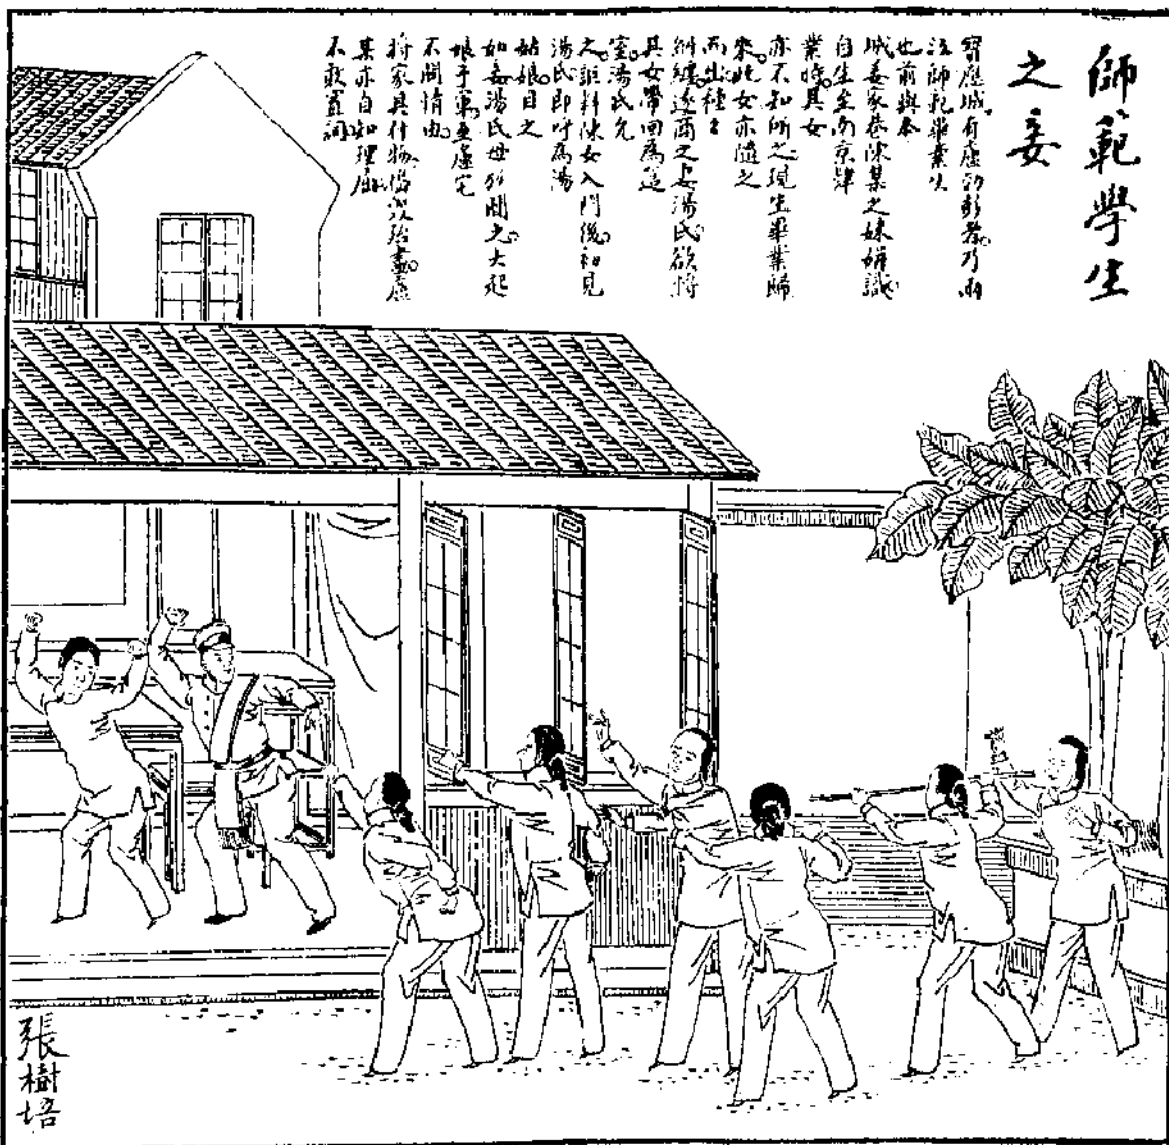 師範學生
之妾
寶應城有盧 者乃兩
江師範畢業生
也前與本
城姜家巷陳某之妹姘識
自生至南京肄
業時其女
亦不知所之現生畢業歸
來此女亦隨之
而出種種
糾纏遂商之妻湯氏欲將
其女帶回為簉
室湯氏允
之詎料陳女入門後初見
湯氏即呼為湯
姑娘目之
如妾湯氏母 聞之大起
娘子軍至盧宅
不問情由
將家具什物搗毀殆盡盧
某亦自知理屈
不敢置詞
張樹培